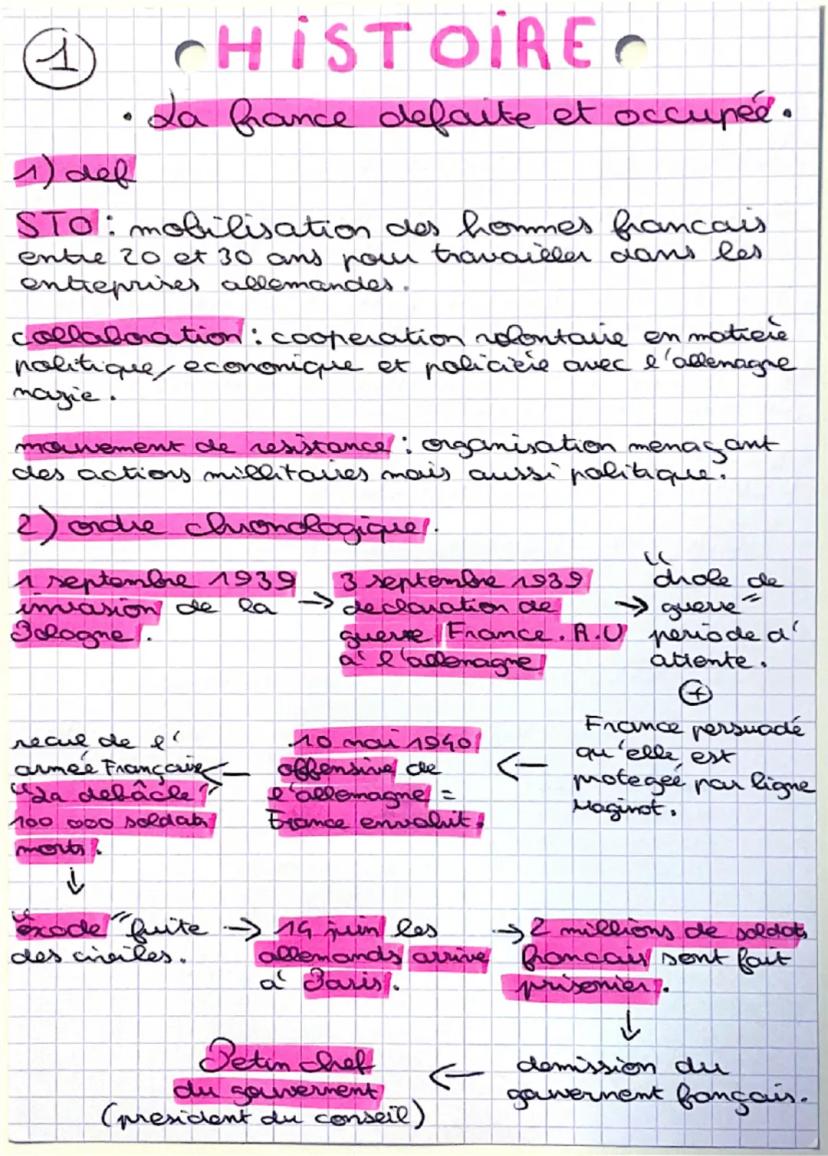 1
HISTOIRE
. La france defaite et occupée.
1) def
STO : mobilisation des hommes francais
entre 20 et 30 ans pour travailler dans les
entreprises allemandes.
collaboration : cooperation volontaire en matiere
politique, economique et policiere avec l'allemagne
nazie.
mouvement de resistance : organisation menaçant
des actions millitaires mais aussi politique.
2) ordre chronologique.
1 septembre 1939
invasion de la
Pologne.
→ 3 septembre 1939
declaration de
guerre France. R.U
à l'allemagne
→ "drole de
guerre"
periode d'
attente.
+
France persuadé
qu'elle est
protegée par ligne
Maginot.
← 10 mai 1940
offensive de
l'allemagne =
France envahit.
← recul de l'
armée Française
"La debâcle"
100 000 soldats
morts.
↓
"exode" fuite
des civiles.
→ 14 juin les
allemands arrive
à Paris.
→ 2 millions de soldats
francais sont fait
prisonier.
↓
demission du
gouvernent français.
← Petin chef
du gouvernent
(president du conseil)